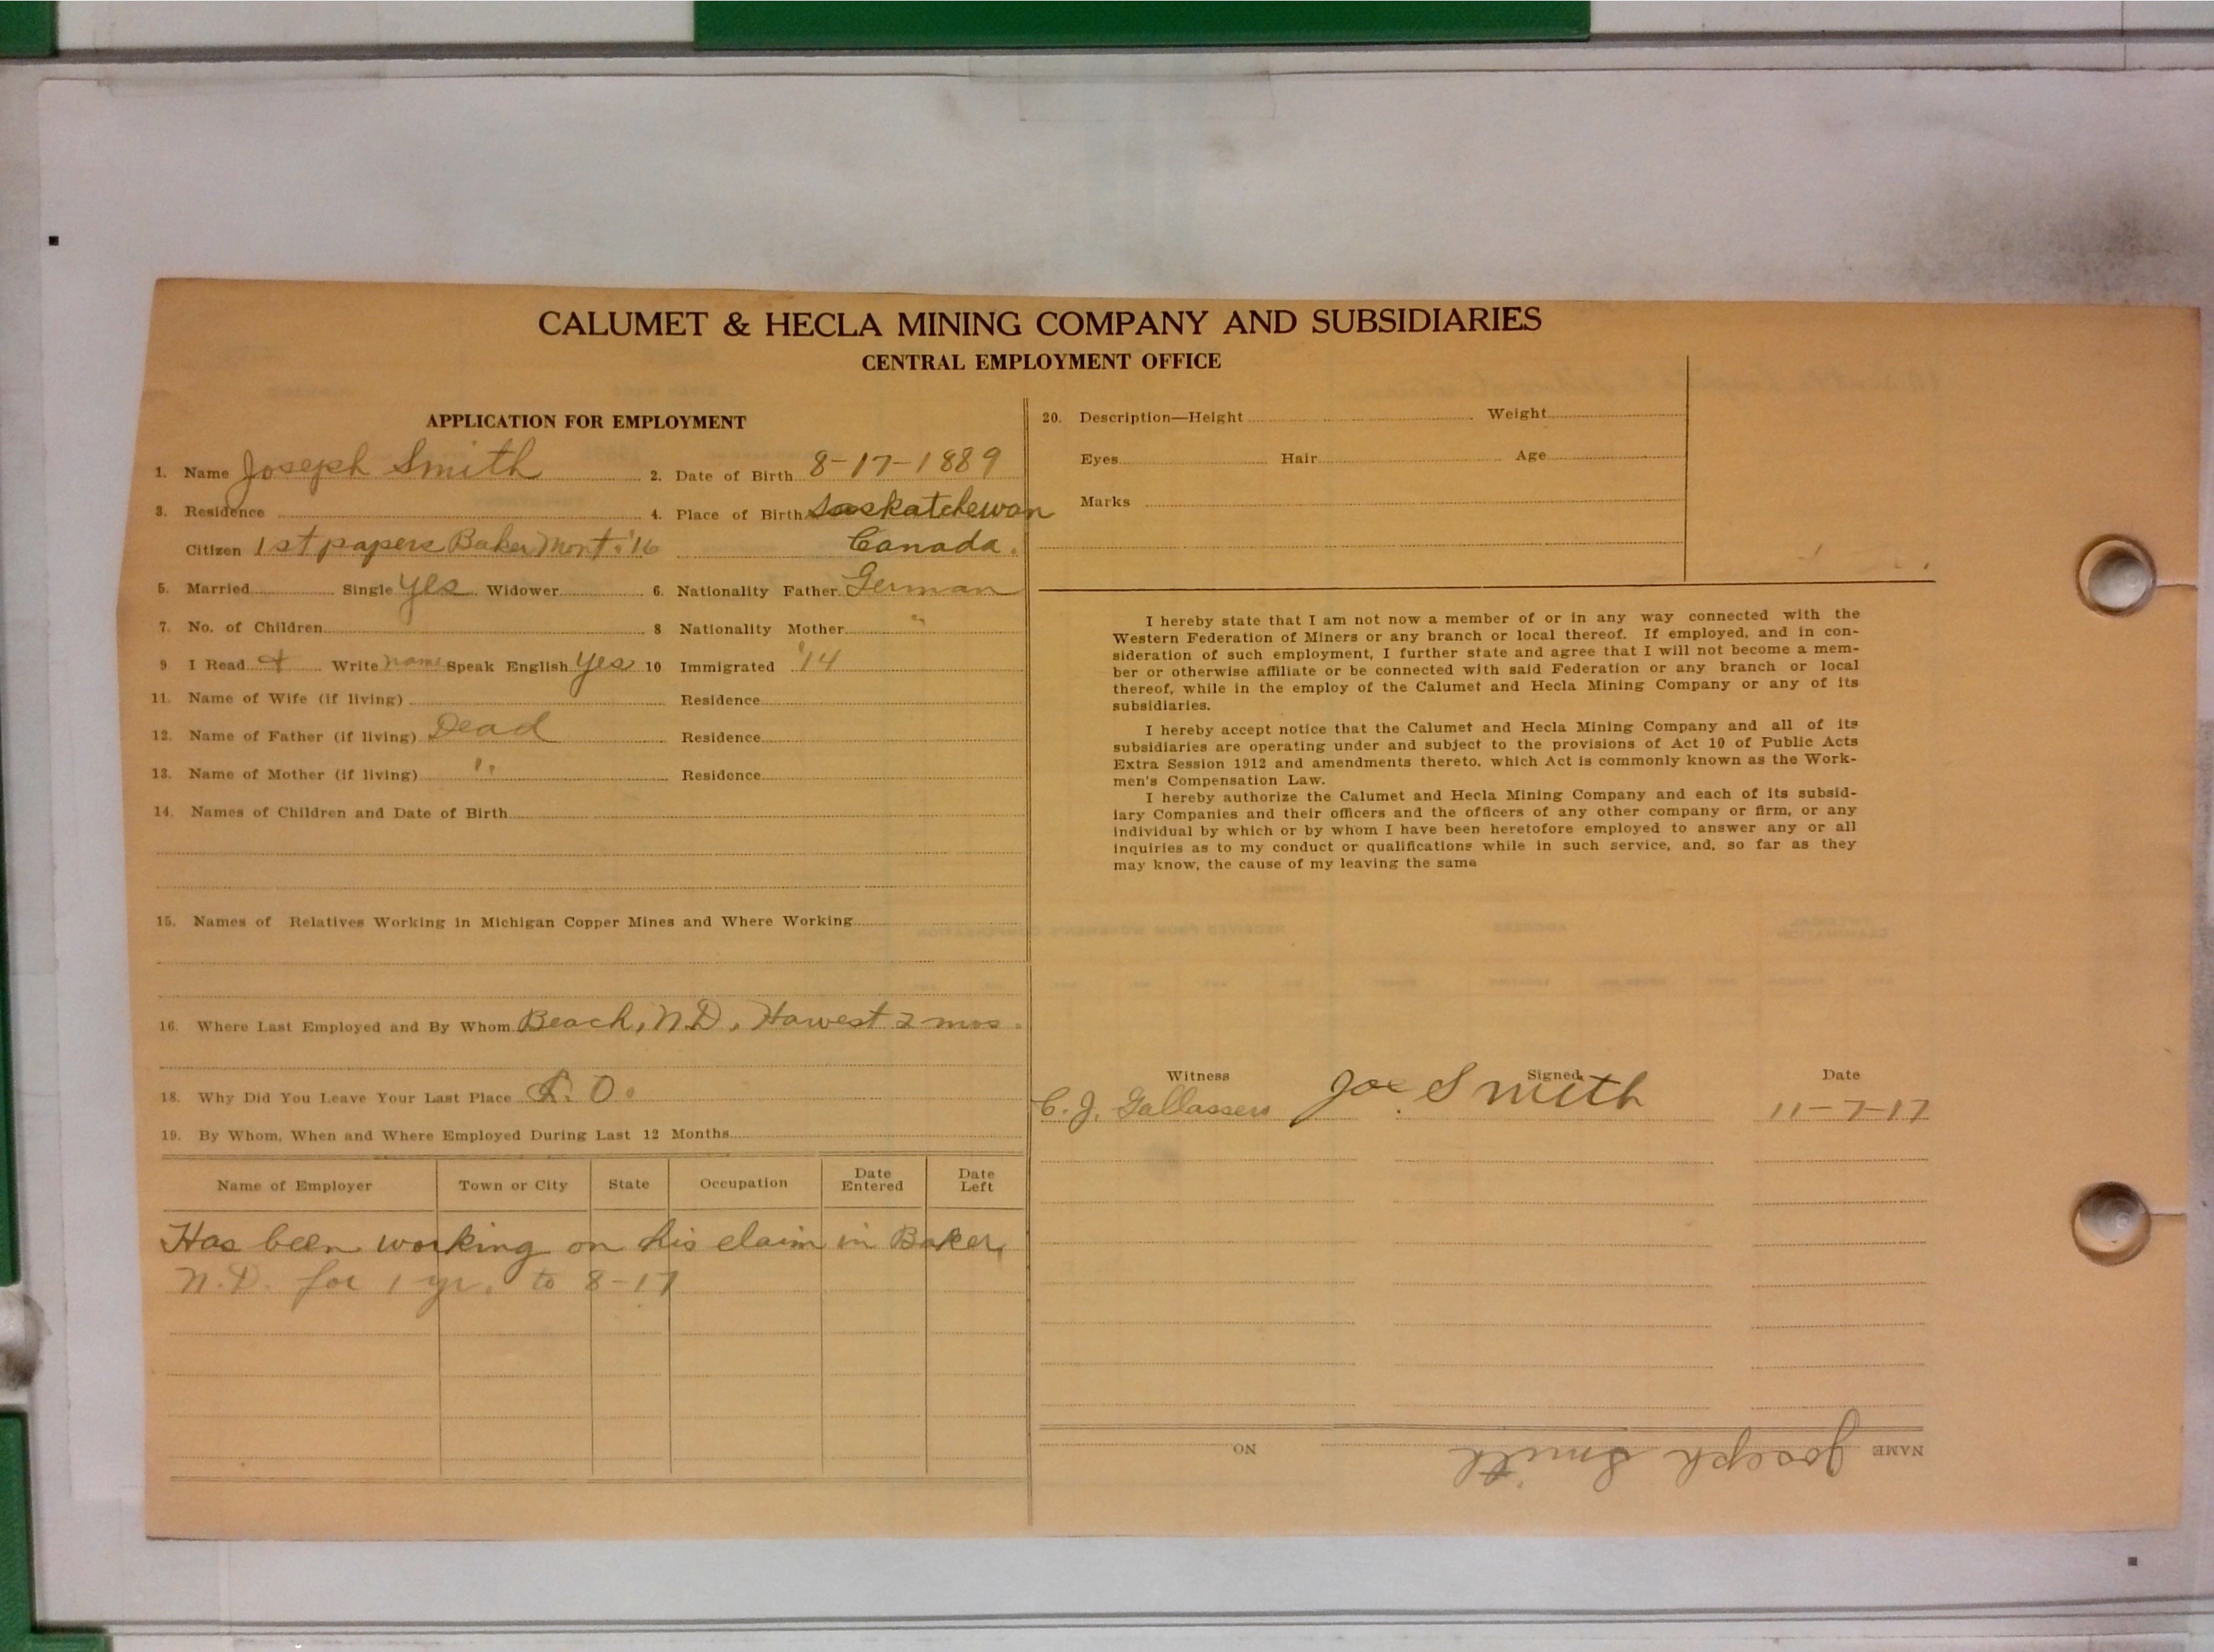 CALUMET & HECLA MINING COMPANY AND SUBSIDIARIES
CENTRAL EMPLOYMENT OFFICE
APPLICATION FOR EMPLOYMENT
1. Name Joseph Smith 2. Date of Birth 8-17-1889
3. Residence 4. Place of Birth Saskatchewan
Citizen 1st papers Baker Mont. '16 Canada.
5. Married Single yes Widower 6. Nationality Father German
7. No. of Children 8 Nationality Mother "
9 I Read & Write name Speak English yes 10 Immigrated '14
11. Name of Wife (if living) Residence
12. Name of Father (if living) Dead Residence
13. Name of Mother (if living) " Residence
14. Names of Children and Date of Birth
15. Names of Relatives Working in Michigan Copper Mines and Where Working
16. Where Last Employed and By Whom Beach, N.D. Harvest 2 mos.
18. Why Did You Leave Your Last Place O.
19. By Whom, When and Where Employed During Last 12 Months
Name of Employer Town or City State Occupation Date Entered Date Left
Has been working on his claim in Baker,
N.D. for 1 yr. to 8-17
20. Description—Height Weight
Eyes Hair Age
Marks
I hereby state that I am not now a member of or in any way connected with the
Western Federation of Miners or any branch or local thereof. If employed, and in con-
sideration of such employment, I further state and agree that I will not become a mem-
ber or otherwise affiliate or be connected with said Federation or any branch or local
thereof, while in the employ of the Calumet and Hecla Mining Company or any of its
subsidiaries.
I hereby accept notice that the Calumet and Hecla Mining Company and all of its
subsidiaries are operating under and subject to the provisions of Act 10 of Public Acts
Extra Session 1912 and amendments thereto, which Act is commonly known as the Work-
men's Compensation Law.
I hereby authorize the Calumet and Hecla Mining Company and each of its subsid-
iary Companies and their officers and the officers of any other company or firm, or any
individual by which or by whom I have been heretofore employed to answer any or all
inquiries as to my conduct or qualifications while in such service, and, so far as they
may know, the cause of my leaving the same
Witness Signed Date
C. J. Joe Smith 11-7-17
NAME Joseph Smith NO